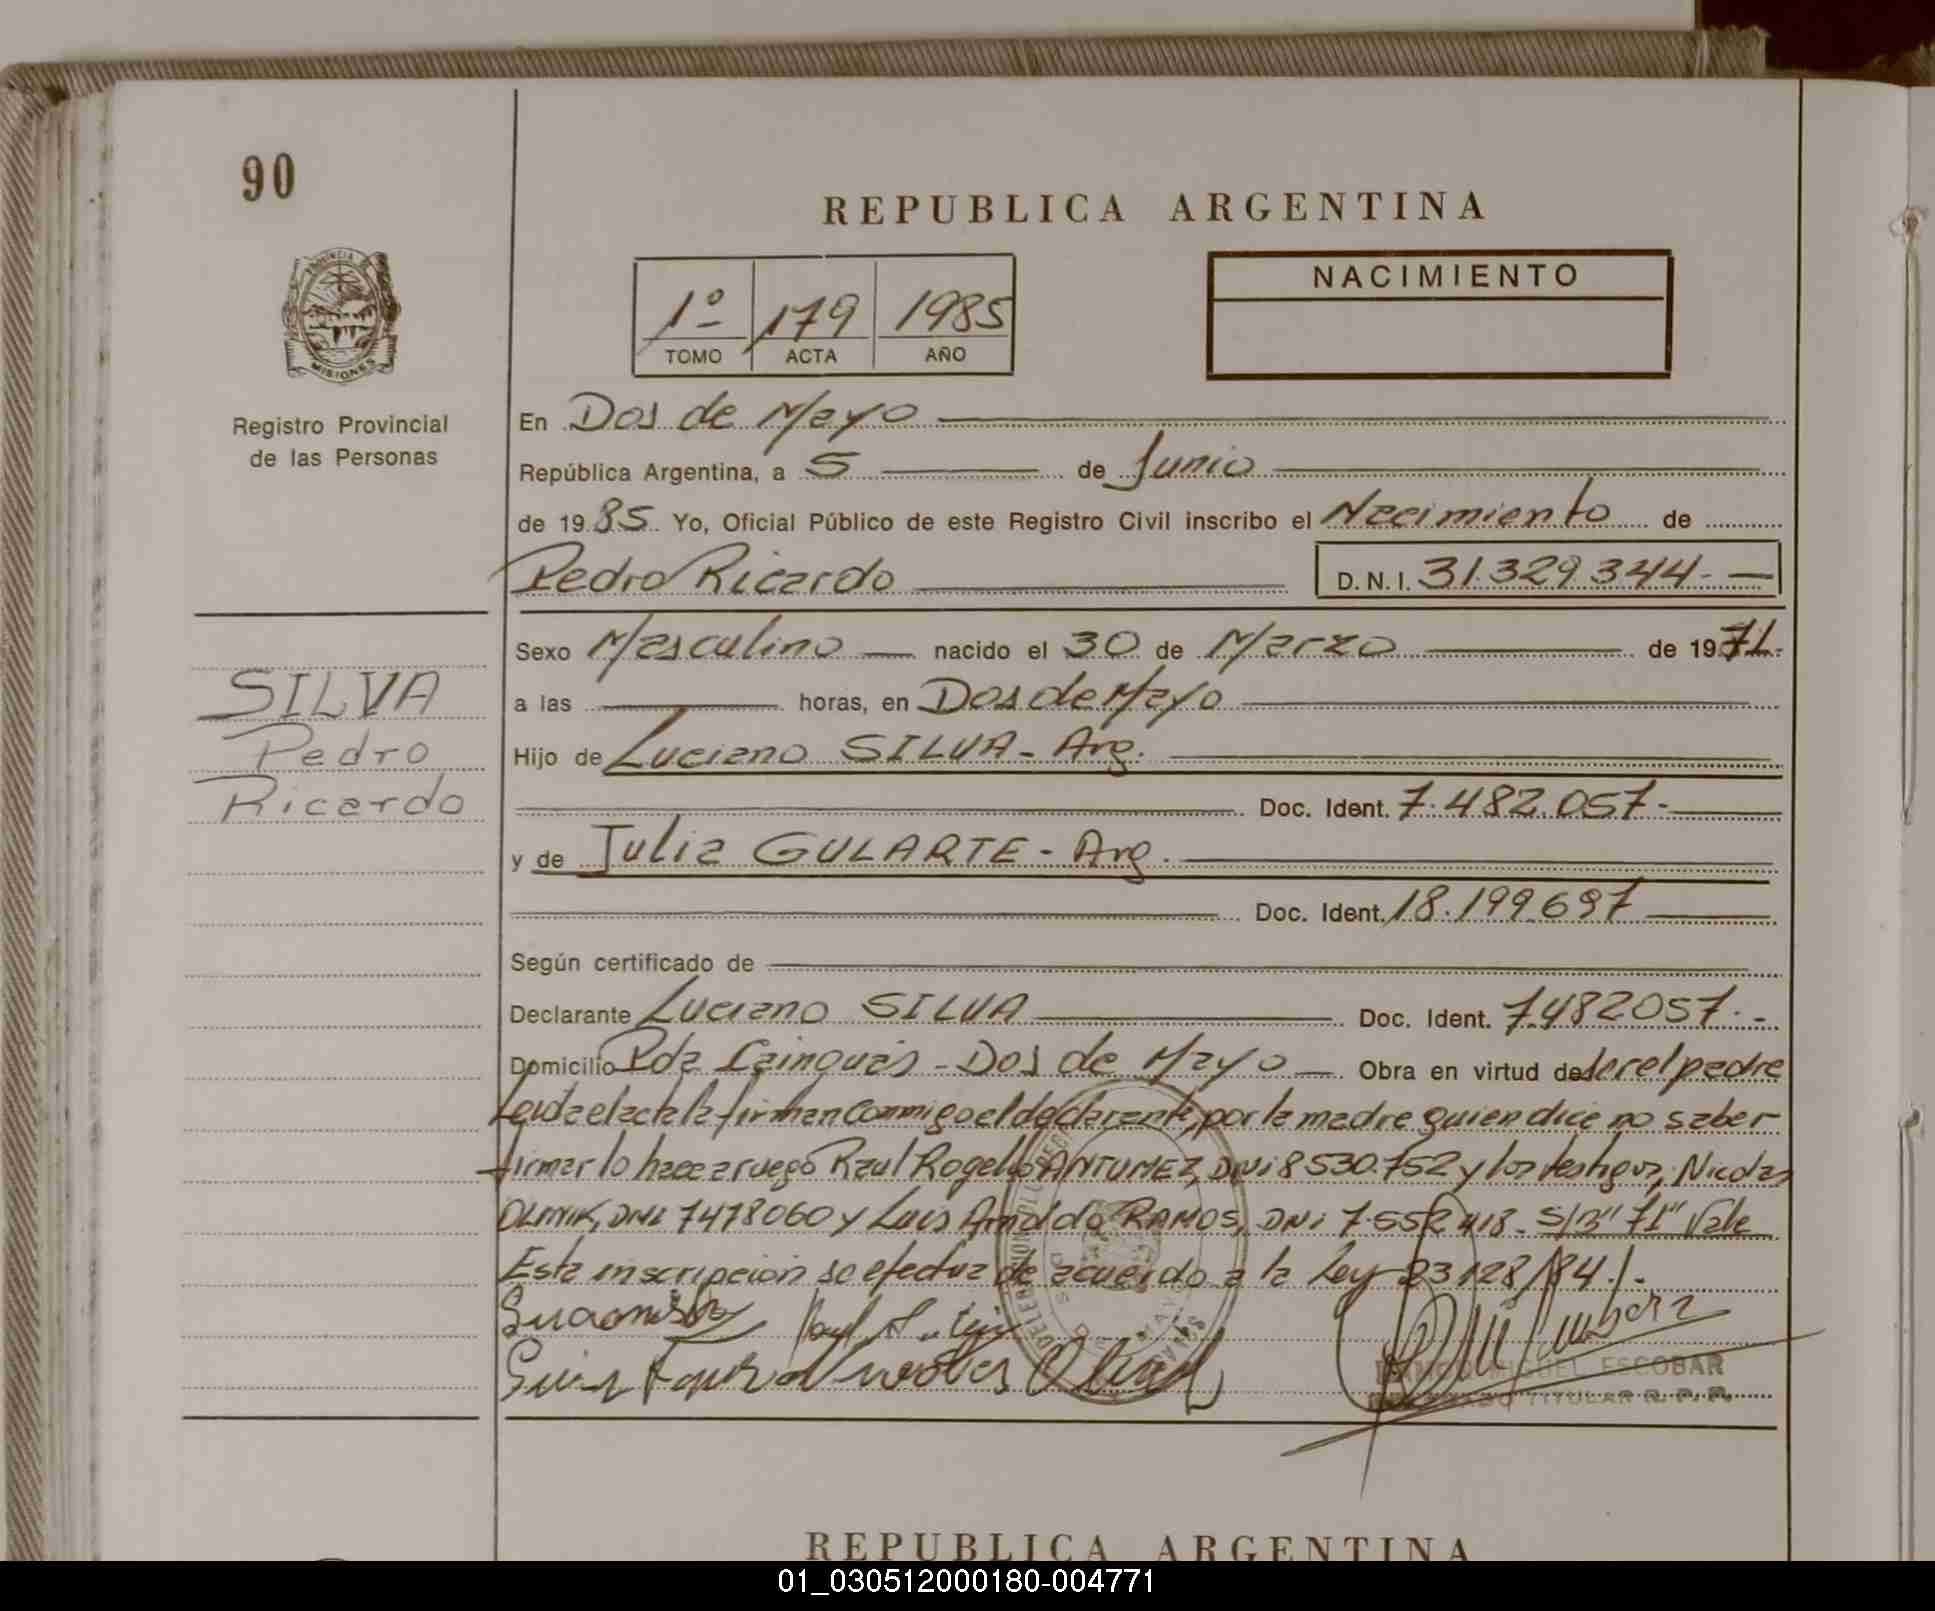 90
REPUBLICA ARGENTINA
PROVINCIA DE
MISIONES
1º 179 1985
TOMO ACTA AÑO
NACIMIENTO
Registro Provincial
de las Personas
En Dos de Mayo
República Argentina, a 5 de Junio
de 1985 Yo, Oficial Público de este Registro Civil inscribo el Nacimiento de
Pedro Ricardo D.N.I. 31.329.344.-
Sexo Masculino nacido el 30 de Marzo de 1971.
a las horas, en Dos de Mayo
SILVA
Pedro
Ricardo
Hijo de Luciano SILVA - Arg.
Doc. Ident. 7.482.057.-
y de Julia GULARTE - Arg.
Doc. Ident. 18.199.697
Según certificado de
Declarante Luciano SILVA Doc. Ident. 7.482057.-
Domicilio Pda Cainguás - Dos de Mayo Obra en virtud de ser el padre
Leida el acta la firman conmigo el declarante, por la madre quien dice no saber
firmar lo hace a ruego Raul Rogelio ANTUNEZ, DNi 8530.752 y los testigos, Nicolas
OLINIK, DNi 7478060 y Luis Arnoldo RAMOS, DNi 7.552.418 - S/B "71" Vale
Esta inscripcion se efectua de acuerdo a la Ley 23128/84./.
MIGUEL ESCOBAR
TITULAR R. P. P.
REPUBLICA ARGENTINA
01_030512000180-004771